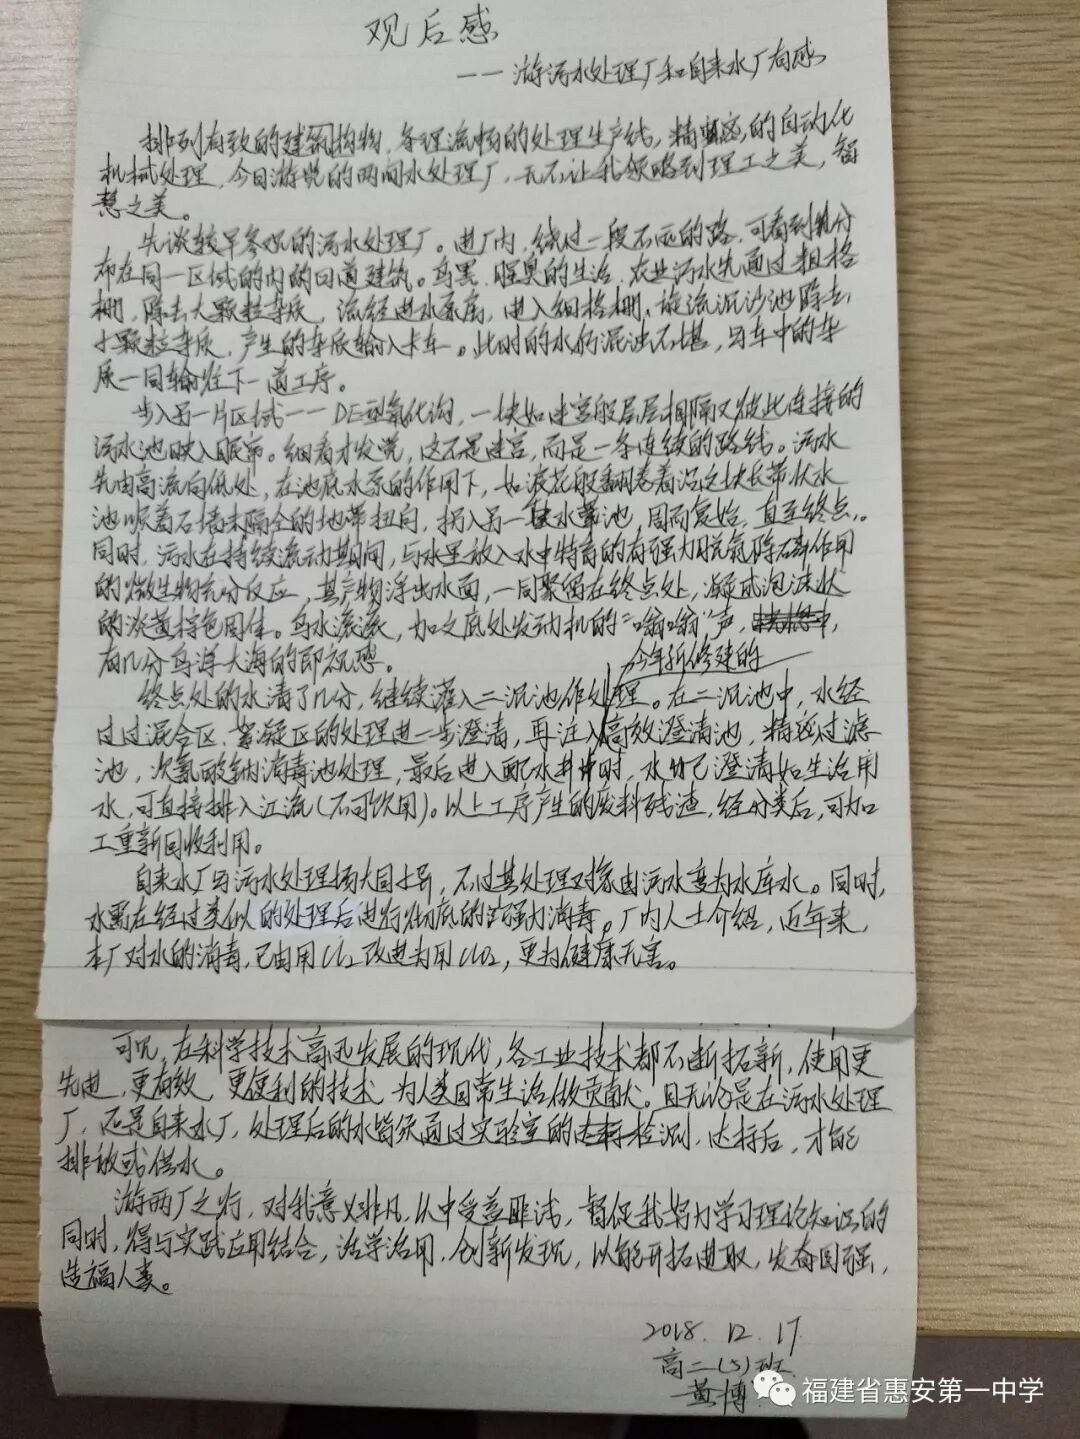 观后感
——游污水处理厂和自来水厂有感
排列有致的建筑构物,条理流畅的处理生产线,精密的自动化
机械处理,今日游览的两间水处理厂,无不让我领略到理工之美,智
慧之美。
先谈较早参观的污水处理厂。进厂内,绕过一段不远的路,可看到分
布在同一区域的内的回道建筑。乌黑、腥臭的生活、农业污水先通过粗格
栅,除去大颗粒杂质,流经进水泵房,进入细格栅、旋流沉沙池除去
小颗粒杂质,产生的杂质输入卡车。此时的水仍混浊不堪,与车中的杂
质一同输往下一道工序。
步入另一片区域——DE型氧化沟,一块如迷宫般层层相隔又彼此连接的
污水池映入眼帘。细看才发觉,这不是迷宫,而是一条连续的路线。污水
先由高流向低处,在池底水泵的作用下,如浪花般翻卷着沿这块长带状水
池顺着石墙未隔全的地带扭向,拐入另一块水带池,周而复始,直至终点。
同时,污水在持续流动期间,与水里放入水中特畜的有强力脱氮除磷作用
的微生物充分反应,其产物浮出水面,一同聚留在终点处,凝成泡沫状
的淡黄棕色固体。乌水滚滚,加之底处发动机的“嗡嗡”声,
有几分乌洋大海的即视感。
今年新修建的
终点处的水清了几分,继续灌入二沉池作处理。在二沉池中,水经
过过混合区、絮凝区的处理进一步澄清,再注入高效澄清池,精密过滤
池,次氯酸钠消毒池处理,最后进入配水井中时,水已澄清如生活用
水,可直接排入江流(不可饮用)。以上工序产生的废料残渣,经分类后,可加
工重新回收利用。
自来水厂与污水处理场大同小异,不过其处理对象由污水变为水库水。同时,
水需在经过类似的处理后进行彻底的强力消毒。厂内人士介绍,近年来,
本厂对水的消毒,已由用Cl₂改进为用ClO₂,更为健康无害。
可见,在科学技术高迅发展的现代,各工业技术都不断拓新,使用更
先进、更有效、更便利的技术,为人类日常生活做贡献。且无论是在污水处理
厂,还是自来水厂,处理后的水皆须通过实验室的检测,达标后,才能
排放或供水。
游两厂之行,对我意义非凡,从中受益匪浅,督促我努力学习理论知识的
同时,得与实践应用结合,活学活用,创新发现,以能开拓进取,发奋图强,
造福人类。
2018.12.17
高二(5)班
黄博
福建省惠安第一中学